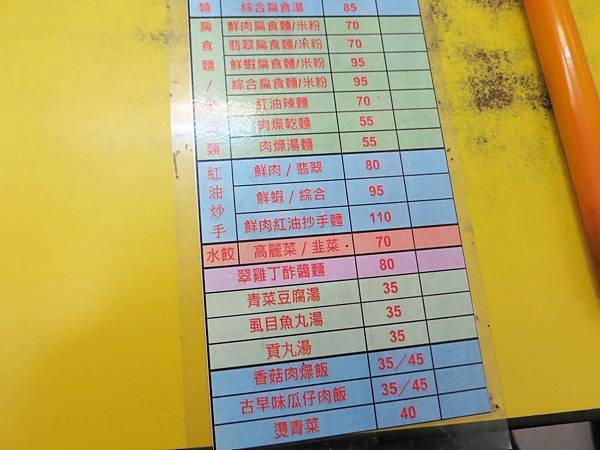 類 綜合扁食湯 85
扁食麵/米粉類
鮮肉扁食麵/米粉 70
翡翠扁食麵/米粉 70
鮮蝦扁食麵/米粉 95
綜合扁食麵/米粉 95
紅油辣麵 70
肉燥乾麵 55
肉燥湯麵 55
紅油炒手
鮮肉/翡翠 80
鮮蝦/綜合 95
鮮肉紅油抄手麵 110
水餃 高麗菜/韭菜 70
翠雞丁酢醬麵 80
青菜豆腐湯 35
虱目魚丸湯 35
貢丸湯 35
香菇肉燥飯 35/45
古早味瓜仔肉飯 35/45
燙青菜 40